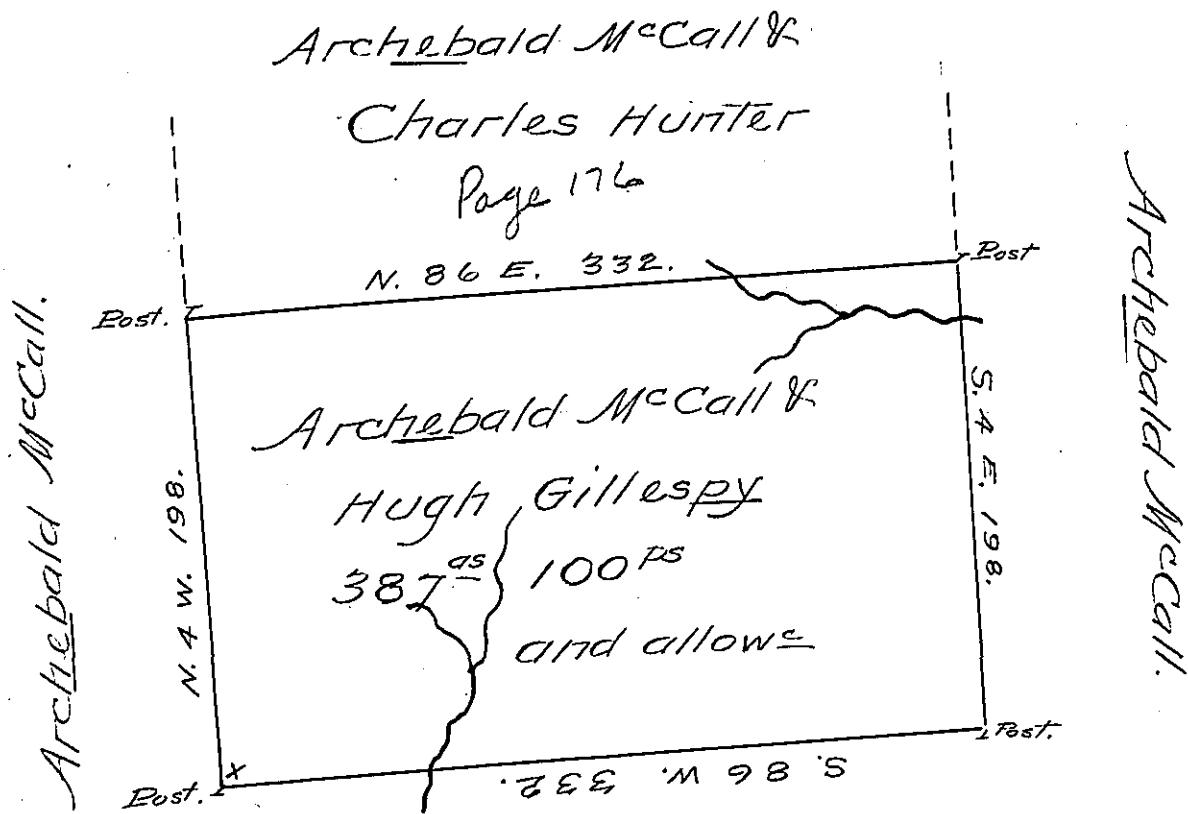 Archebald McCall &
Charles Hunter
Page 176
N. 86 E. 332.
Post
Post.
Archebald McCall.
N. 4 W. 198.
Archebald McCall &
Hugh Gillespy
387 as 100 ps
and allowc
S. 4 E. 198.
Archebald McCall.
Post.
S. 86 W. 332.
X
Post.